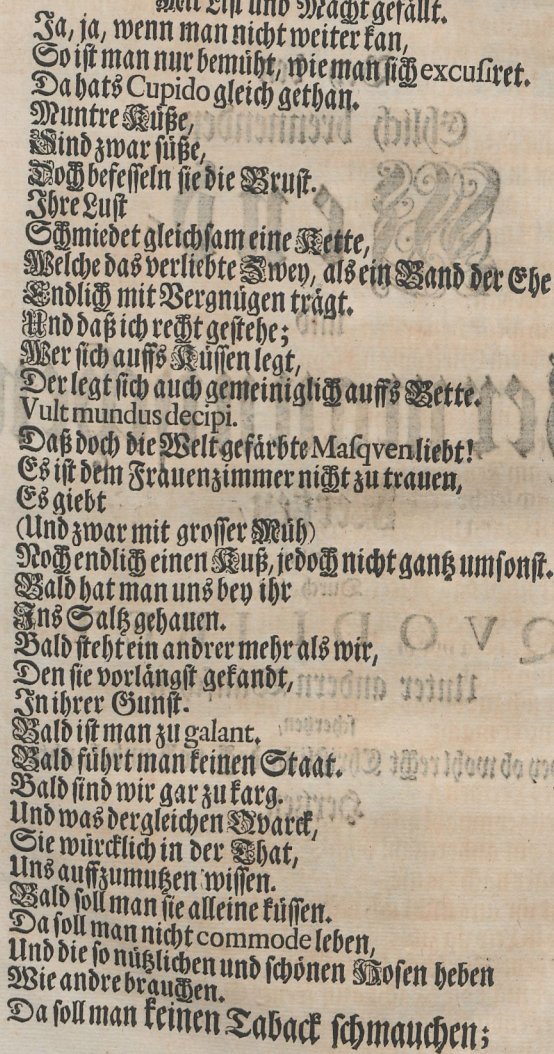 Mit List und Macht gefällt.
Ja, ja, wenn man nicht weiter kan,
So ist man nur bemüht, wie man sich excusiret.
Da hats Cupido gleich gethan.
Muntre Küße,
Sind zwar süße,
Doch befesseln sie die Brust.
Ihre Lust
Schmiedet gleichsam eine Kette,
Welche das verliebte Zwey, als ein Band der Ehe
Endlich mit Vergnügen trägt.
Und daß ich recht gestehe;
Wer sich auffs Küssen legt,
Der legt sich auch gemeiniglich auffs Bette.
Vult mundus decipi.
Daß doch die Welt gefärbte Masqven liebt!
Es ist dem Frauenzimmer nicht zu trauen,
Es giebt
(Und zwar mit grosser Müh)
Noch endlich einen Kuß, jedoch nicht gantz umsonst.
Bald hat man uns bey ihr
Ins Saltz gehauen.
Bald steht ein andrer mehr als wir,
Den sie vorlängst gekandt,
In ihrer Gunst.
Bald ist man zu galant.
Bald führt man keinen Staat.
Bald sind wir gar zu karg.
Und was dergleichen Qvarck,
Sie würcklich in der That,
Uns auffzumutzen wissen.
Bald soll man sie alleine küssen.
Da soll man nicht commode leben,
Und die so nützlichen und schönen Hosen heben
Wie andre brauchen.
Da soll man keinen Taback schmauchen;